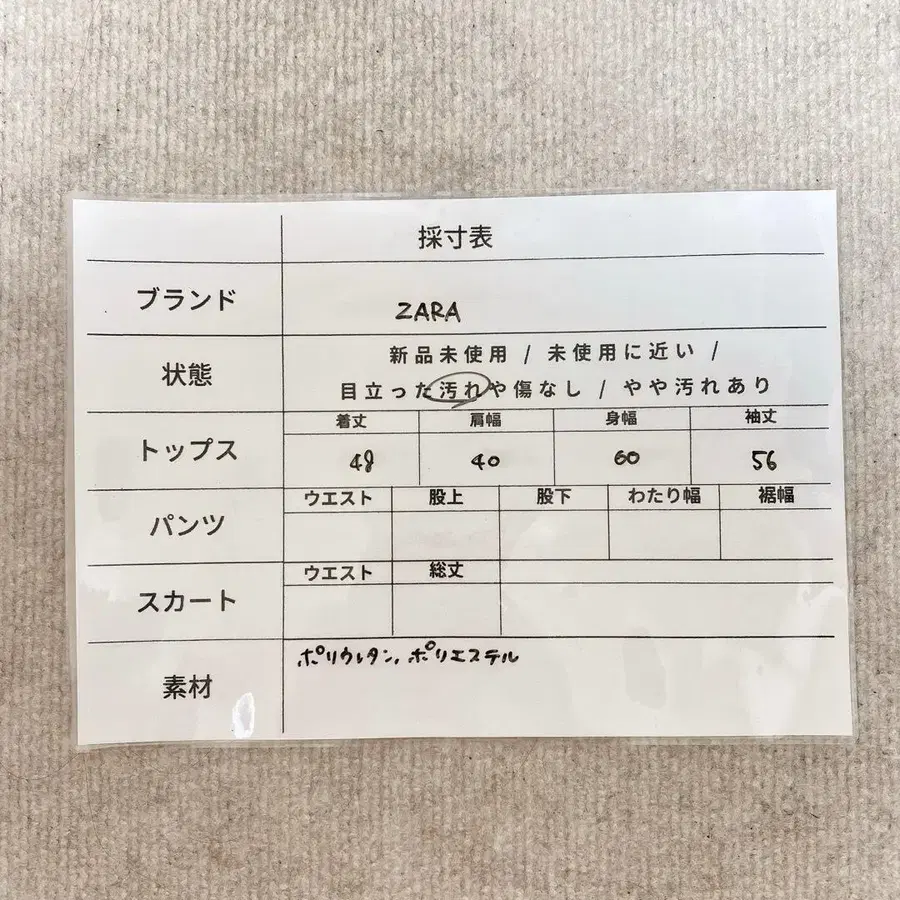 採寸表
ブランド ZARA
状態 新品未使用 / 未使用に近い /
目立った汚れや傷なし / やや汚れあり
トップス 着丈 肩幅 身幅 袖丈
48 40 60 56
パンツ ウエスト 股上 股下 わたり幅 裾幅
スカート ウエスト 総丈
素材 ポリウレタン、ポリエステル